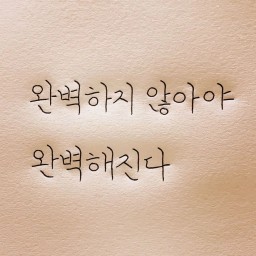 완벽하지 않아야
완벽해진다